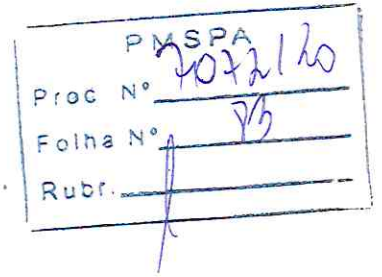 PMSPA
Proc Nº 7072/20
Folha Nº
Rubr.